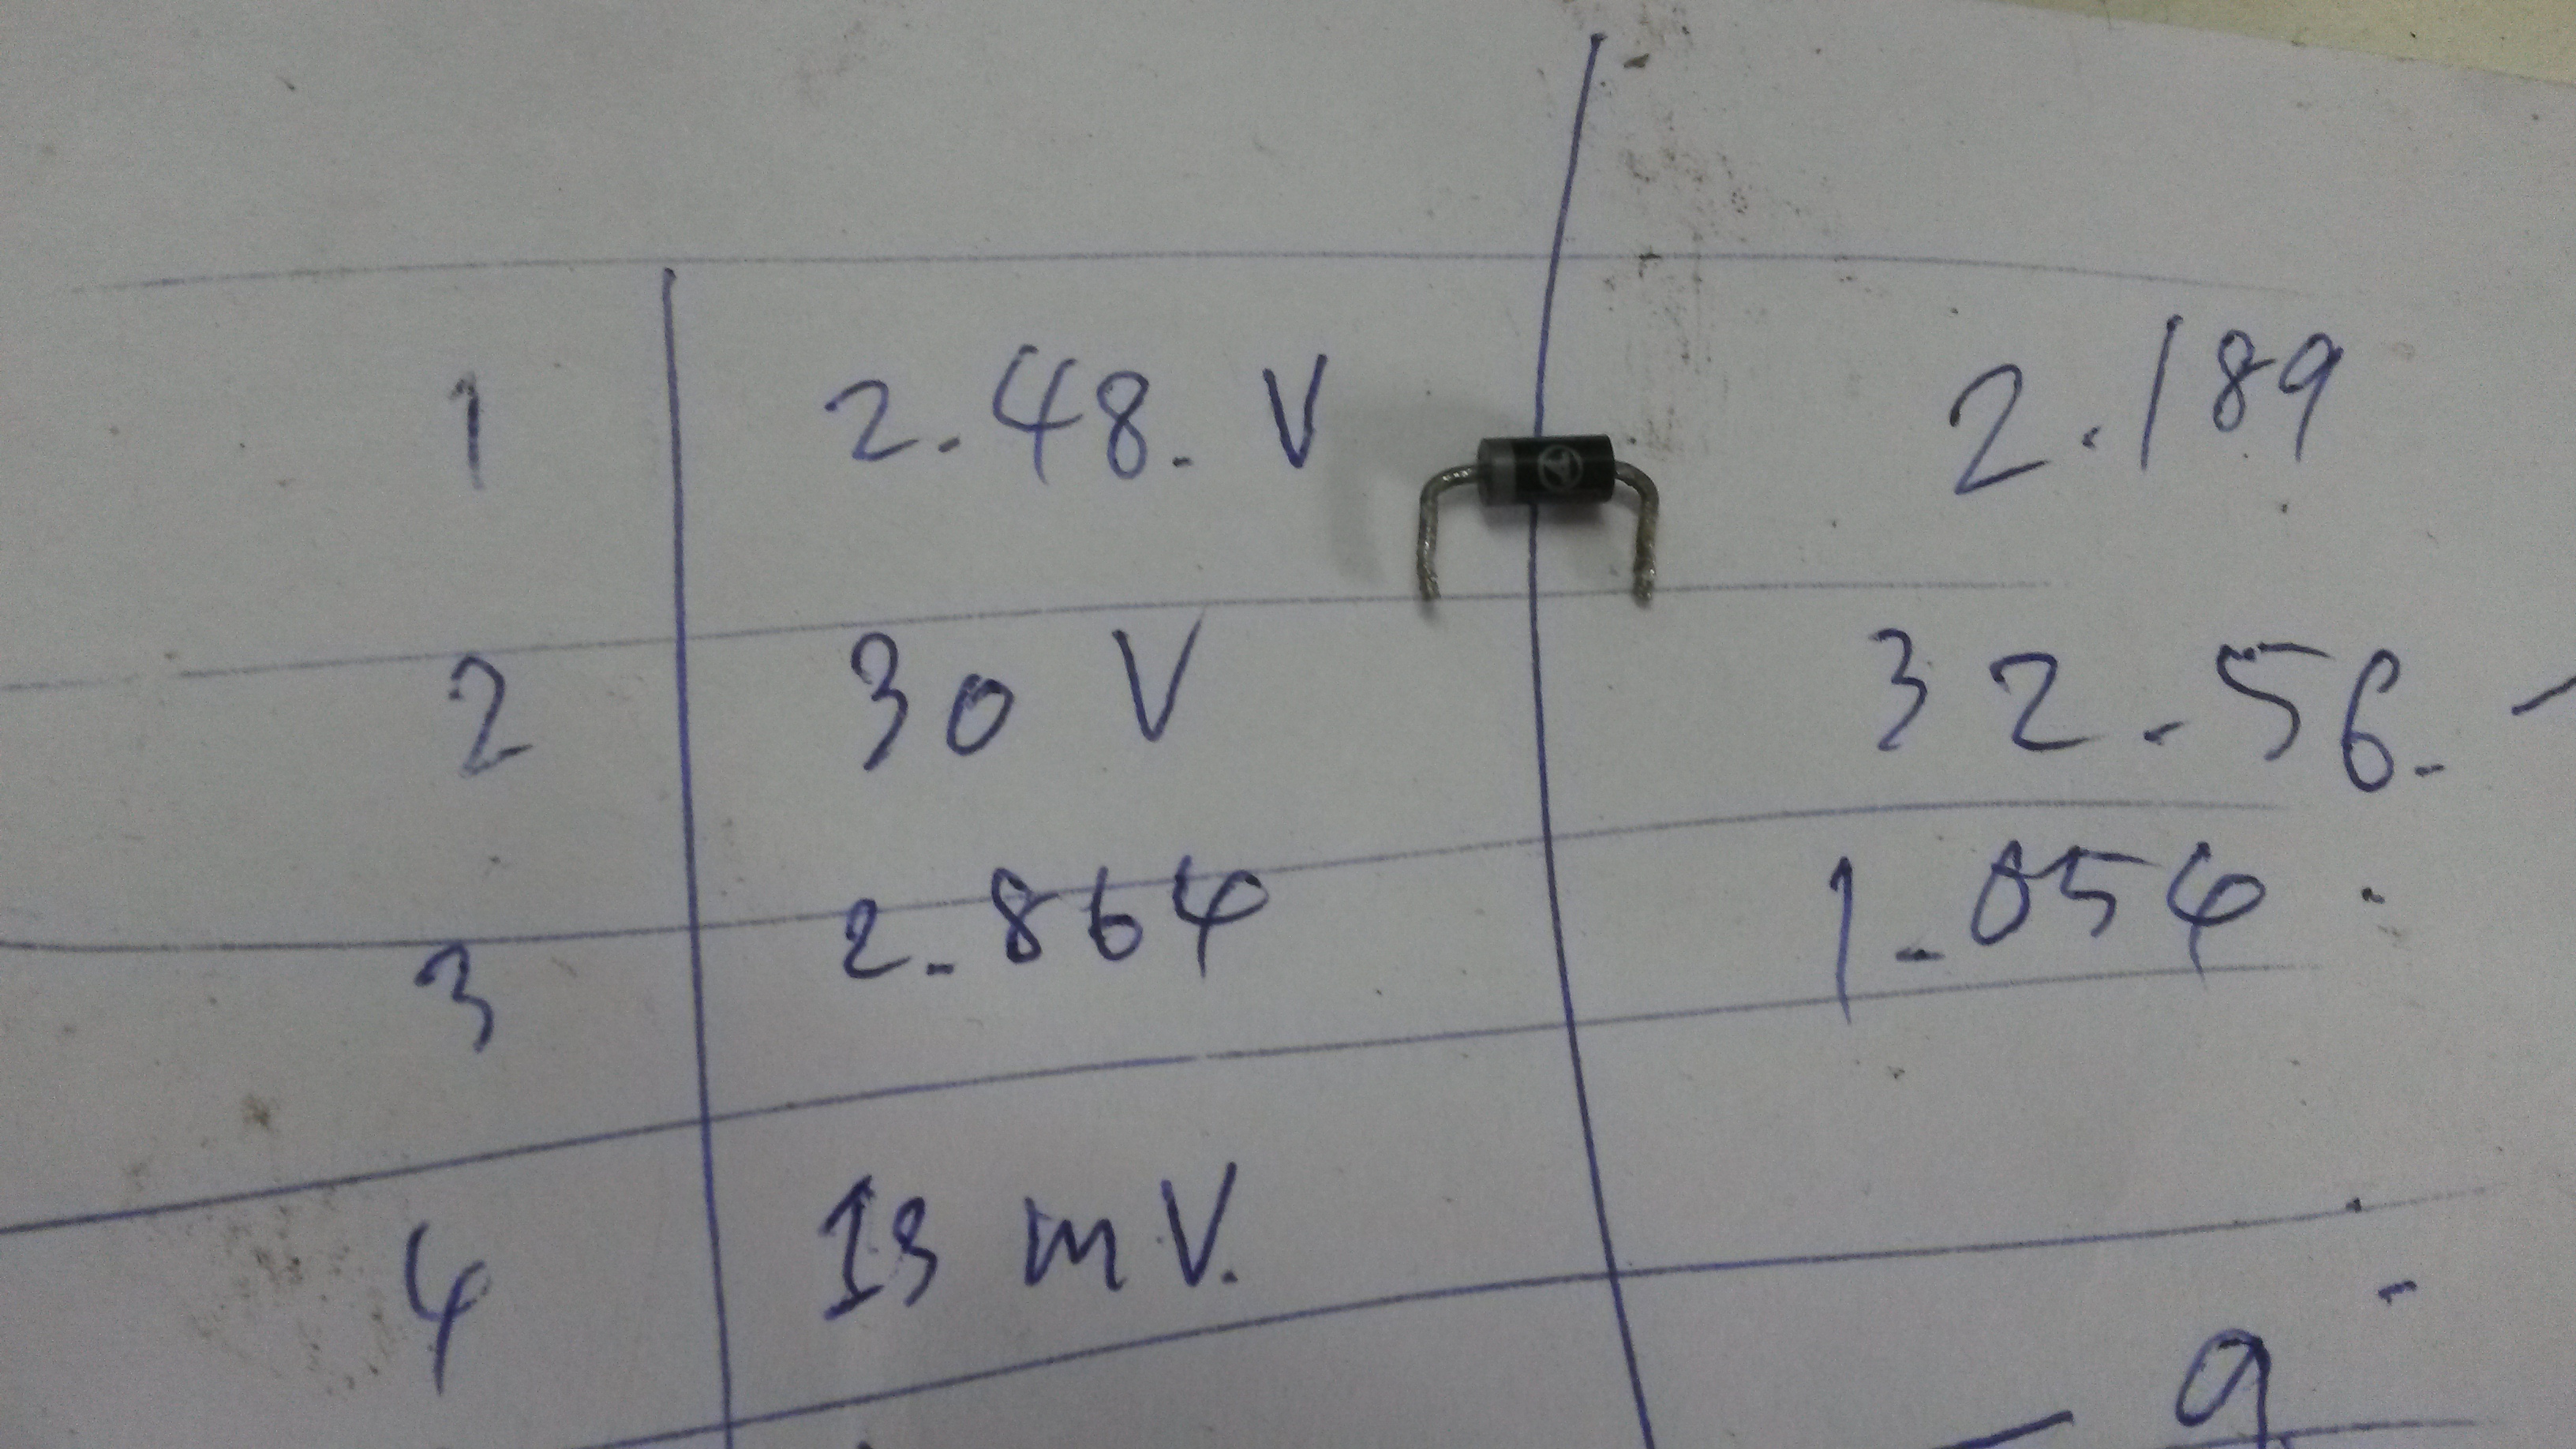 1 2.48. V 2.189
2 30 V 32.56.
3 2.864 1.054
4 13 mV.
9